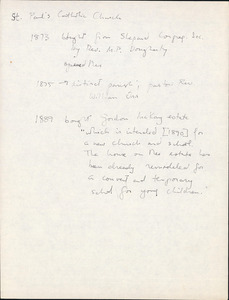 St. Paul's Catholic Church
1873 bought from Shepard Congreg. Soc.
by Rev. M.P. Dougherty
1875 → distinct parish; pastor Rev.
William Orr
1889 bought Gordon McKay estate
"which is intended [1890] for
a new church and school.
The house on the estate has
been already remodeled for
a convent and temporary
school for young children."